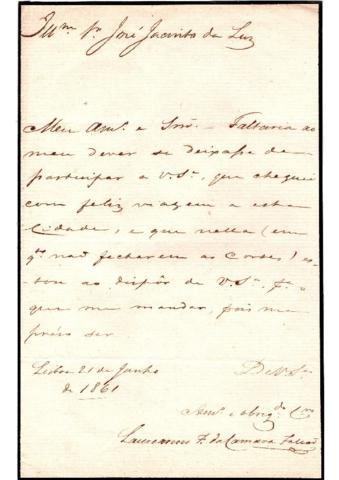 Illmo Sr José Jacinto da Luz
Meu Amo. e Snr. Faltaria ao
meu dever se deixasse de
participar a V. Sa, que cheguei
com feliz viagem a esta
Cidade, e que nella (em
qto não fecharem as Cortes) es-
tou ao dispôr de V. Sa pa
que me mandar, pois me
prézo ser
Lisboa 21 de Junho
de 1861
De V. Sa
Amo. e obrigdo
da Camara Falcão